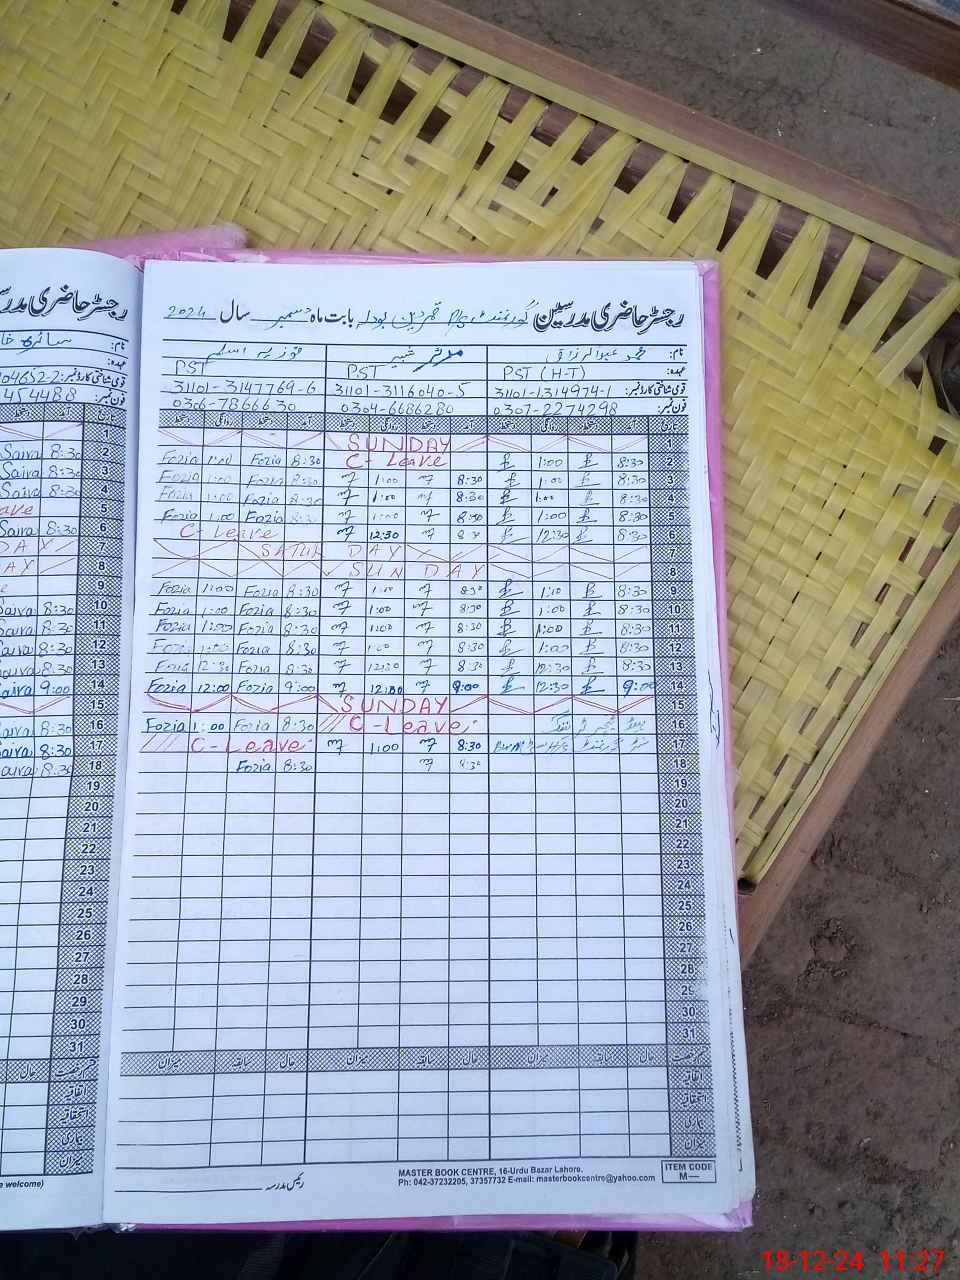 رجسٹر حاضری مدرسین گورنمنٹ P/S قمر دین بودلہ بابت ماہ دسمبر سال 2024
نام: محمد عبدالرزاق مدثر شبیر فوزیہ اسلم
عہدہ: PST (H-T) PST PST
قومی شناختی کارڈ نمبر: 31101-1314974-1 31101-3116040-5 31101-3147769-6
فون نمبر: 0307-2274298 0304-6686280 0306-7866630
تاریخ آمد دستخط روانگی دستخط آمد دستخط روانگی دستخط آمد دستخط روانگی دستخط
SUNDAY 1
Fozia 1:00 Fozia 8:30 C-Leave 1:00 8:30 2
Fozia 1:00 Fozia 8:30 1:00 8:30 1:00 8:30 3
Fozia 1:00 Fozia 8:30 1:00 8:30 1:00 8:30 4
Fozia 1:00 Fozia 8:30 1:00 8:30 1:00 8:30 5
C-Leave 12:30 8:30 12:30 8:30 6
SATURDAY 7
SUNDAY 8
Fozia 1:00 Fozia 8:30 1:00 8:30 1:00 8:30 9
Fozia 1:00 Fozia 8:30 1:00 8:30 1:00 8:30 10
Fozia 1:00 Fozia 8:30 1:00 8:30 1:00 8:30 11
Fozia 1:00 Fozia 8:30 1:00 8:30 1:00 8:30 12
Fozia 12:30 Fozia 8:30 12:30 8:30 12:30 8:30 13
Fozia 12:00 Fozia 9:00 12:00 9:00 12:30 9:00 14
SUNDAY 15
Fozia 1:00 Fozia 8:30 C-Leave 16
C-Leave 1:00 8:30 17
Fozia 8:30 8:30 18
19
20
21
22
23
24
25
26
27
28
29
30
31
قسم رخصت حال سابقہ میزان حال سابقہ میزان حال سابقہ میزان
اتفاقیہ
استحقاقیہ
بیماری
میزان
رئیس مدرسہ
MASTER BOOK CENTRE, 16-Urdu Bazar Lahore.
Ph: 042-37232205, 37357732 E-mail: masterbookcentre@yahoo.com
ITEM CODE
M—
رجسٹر حاضری مدرسین
نام: سائرہ
عہدہ:
قومی شناختی کارڈ نمبر: 04652-2
فون نمبر: 454488
1
Saira 8:30 2
Saira 8:30 3
Saira 8:30 4
5
Saira 8:30 6
DAY 7
AY 8
9
Saira 8:30 10
Saira 8:30 11
Saira 8:30 12
Saira 8:30 13
Saira 9:00 14
15
Saira 8:30 16
Saira 8:30 17
Saira 8:30 18
19
20
21
22
23
24
25
26
27
28
29
30
31
حال
اتفاقیہ
استحقاقیہ
بیماری
میزان
welcome)
18-12-24 11:27